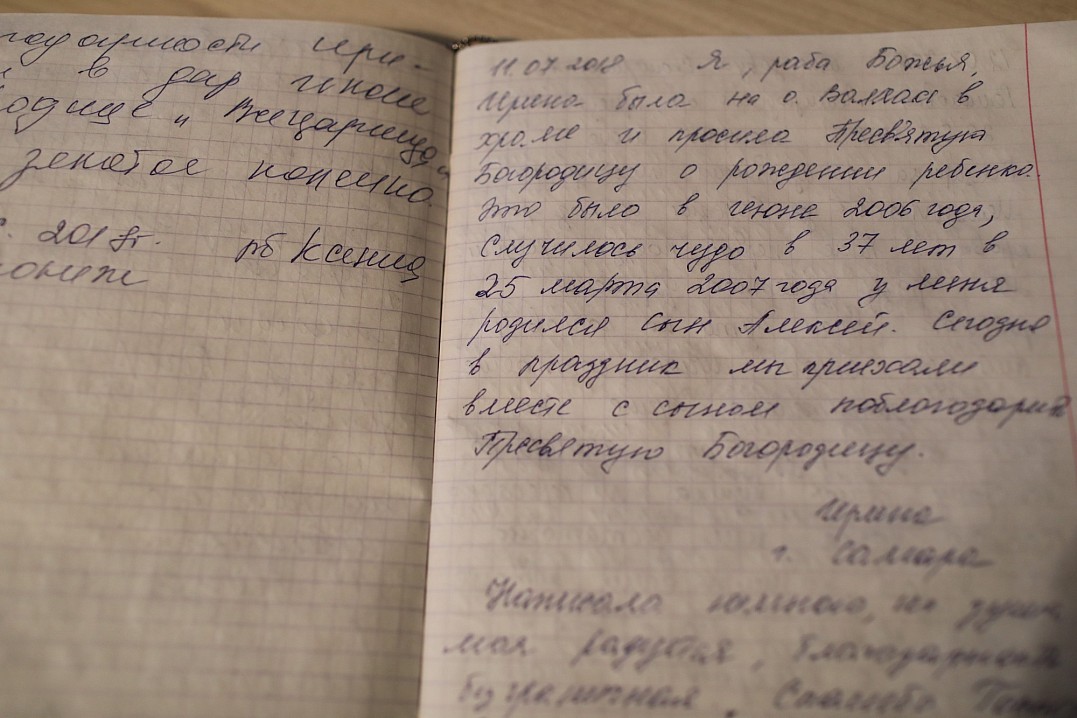 в дар иконе
"Всецарица"
золотое колечко.
2018г. рб Ксения
11.07.2018 Я, раба Божья,
Ирина была на о. Валаам в
храме и просила Пресвятую
Богородицу о рождении ребенка.
Это было в июне 2006 года,
Случилось чудо в 37 лет в
25 марта 2007 года у меня
родился сын Алексей. Сегодня
в праздник мы приехали
вместе с сыном поблагодарить
Пресвятую Богородицу.
Ирина
г. Самара
Написала немного, но душа
моя радуется, благодарность
безгранична. Спасибо